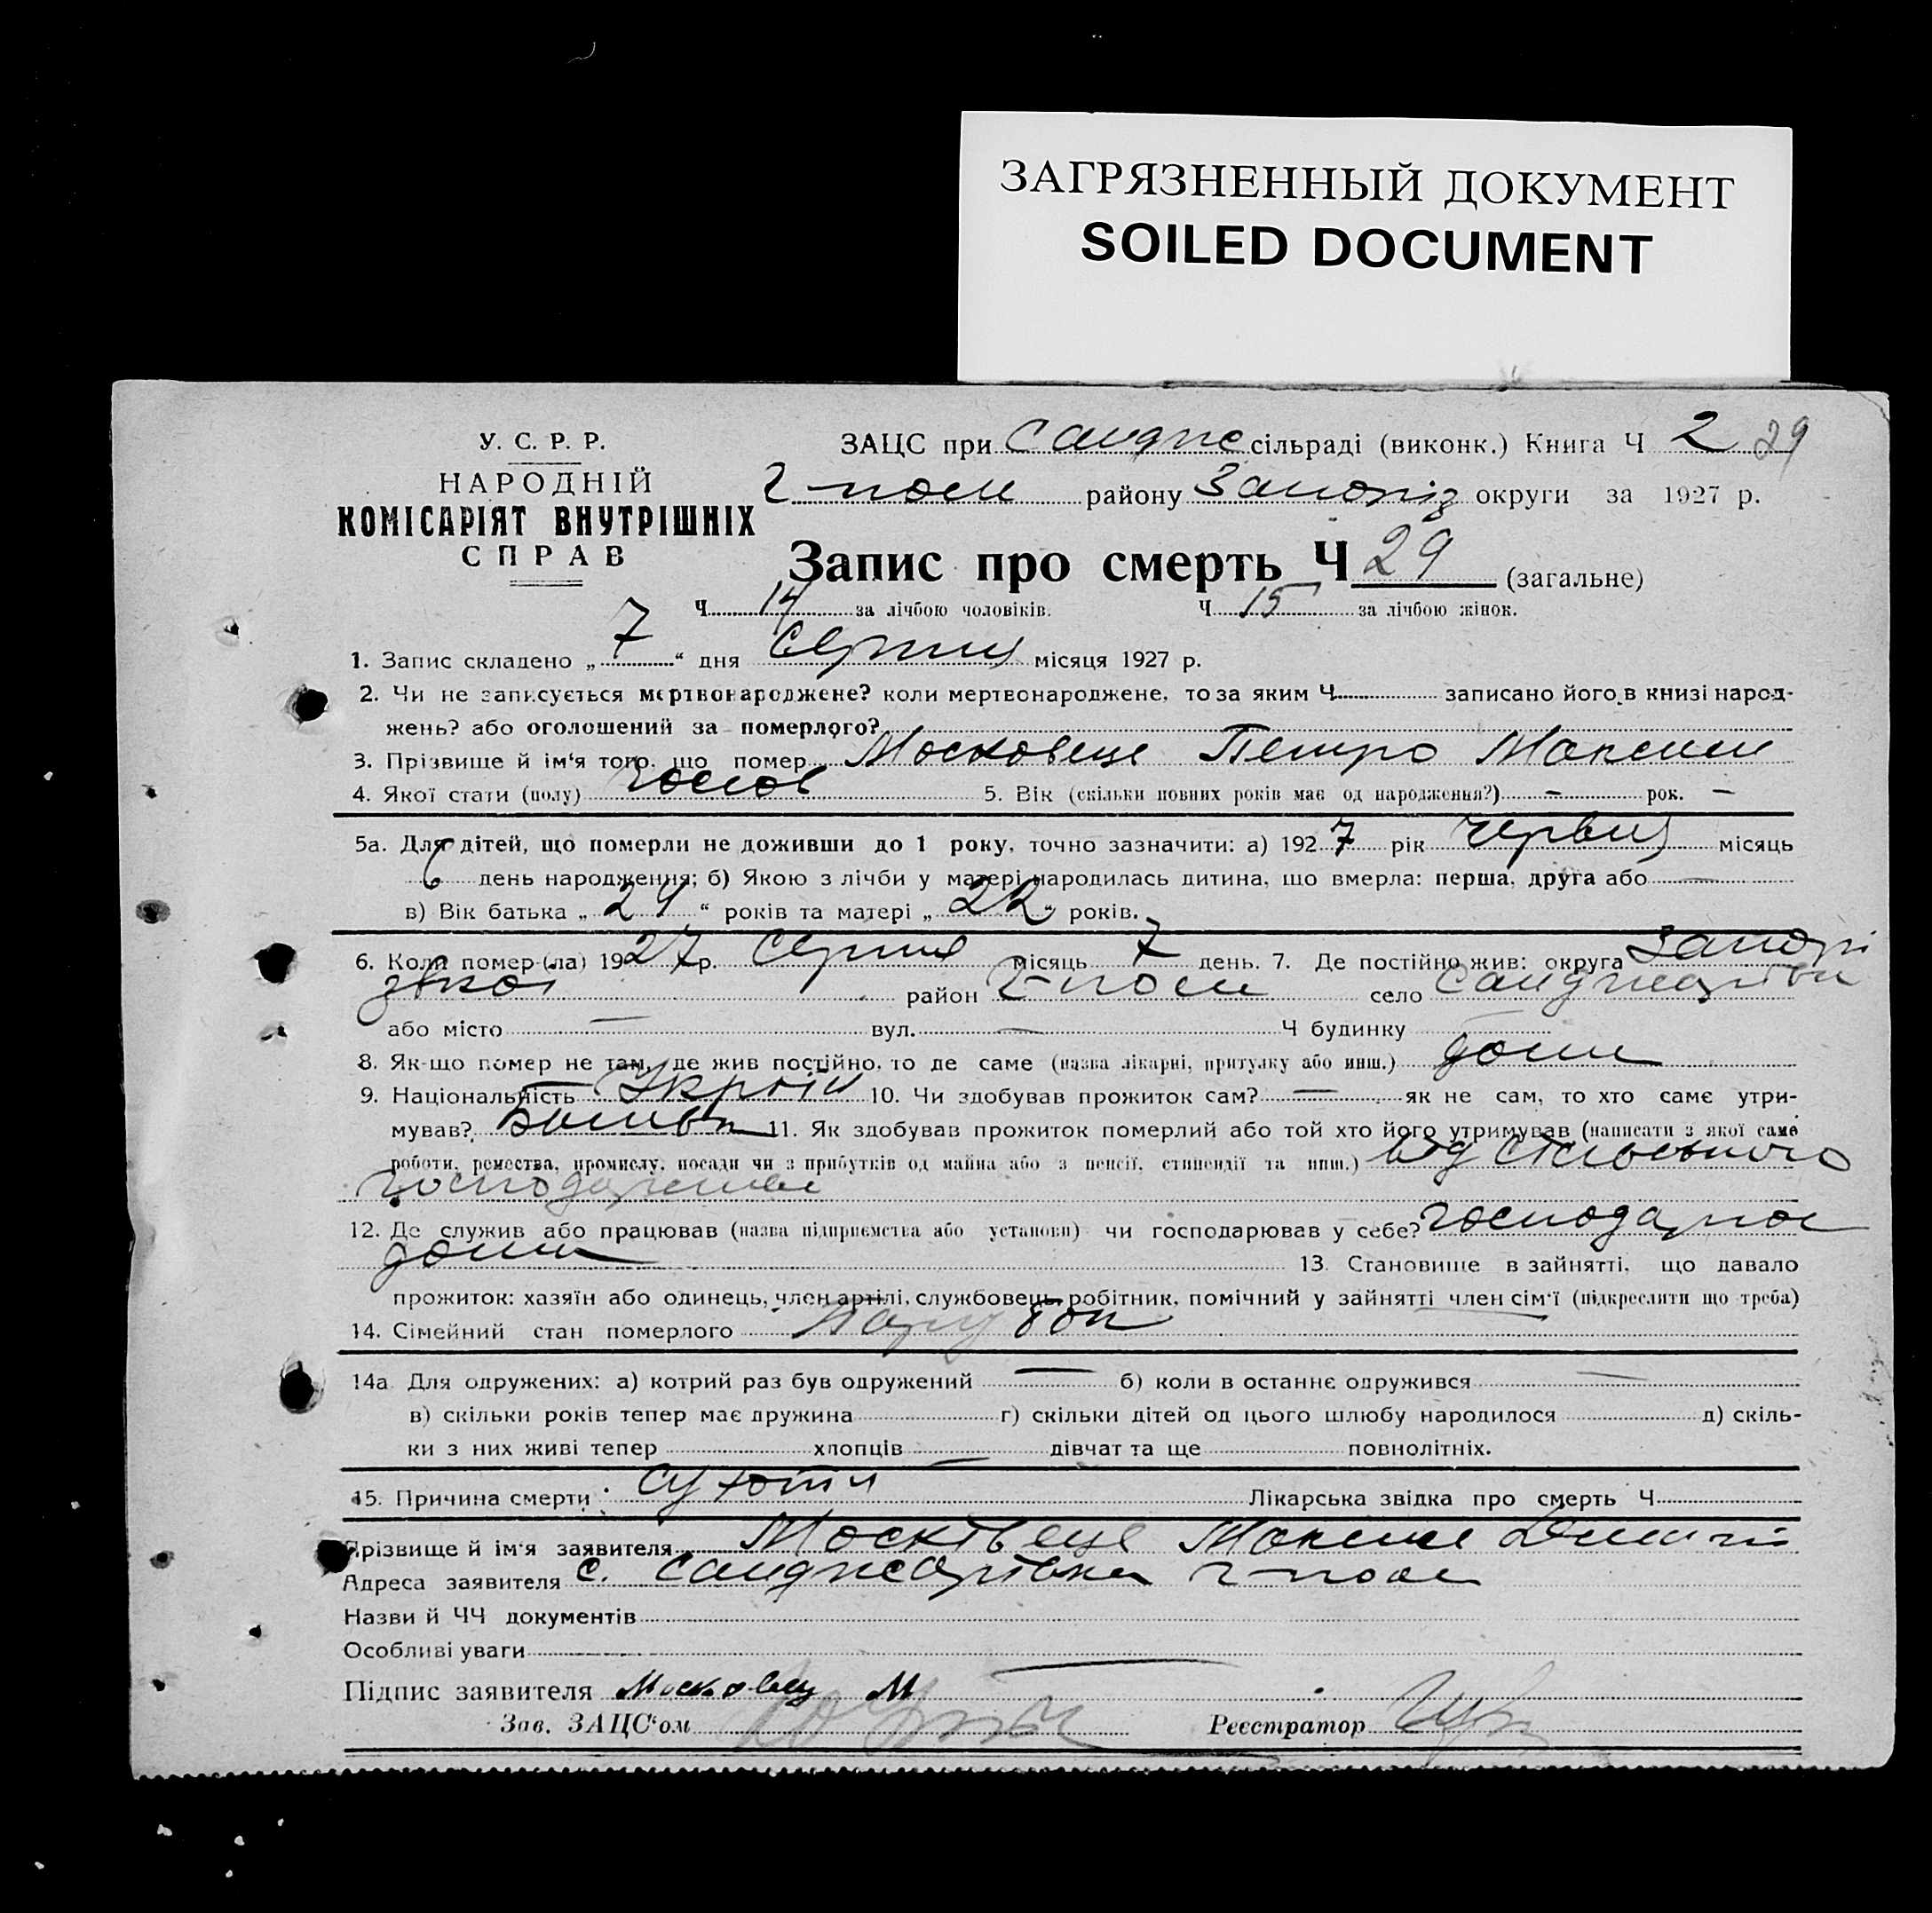 ЗАГРЯЗНЕННЫЙ ДОКУМЕНТ
SOILED DOCUMENT
У. С. Р. Р.
НАРОДНІЙ
КОМІСАРІЯТ ВНУТРІШНІХ
СПРАВ
ЗАЦС при Сандже сільраді (виконк.) Книга Ч 2 29
Г-поле району Запоріз округи за 1927 р.
Запис про смерть Ч 29 (загальне)
Ч 14 за лічбою чоловіків. Ч 15 за лічбою жінок.
1. Запис складено „ 7 “ дня Серпня місяця 1927 р.
2. Чи не записується мертвонароджене? коли мертвонароджене, то за яким Ч записано його в книзі народ-
жень? або оголошений за померлого?
3. Прізвище й ім‘я того, що помер Московець Петро Максим
4. Якої стати (полу) чолов 5. Вік (скільки повних років має од народження?) — рок. —
5а. Для дітей, що померли не доживши до 1 року, точно зазначити: а) 1927 рік Червня місяць
6 день народження; б) Якою з лічби у матері народилась дитина, що вмерла: перша, друга або —
в) Вік батька „ 24 “ років та матері „ 22 “ років.
6. Коли помер (ла) 1927 р. Серпня місяць 7 день. 7. Де постійно жив: округа Запорі
зької район Г-поле село Санджарівка
або місто — вул. — Ч будинку
8. Як-що помер не там, де жив постійно, то де саме (назва лікарні, притулку або инш.) дома
9. Національність Україн 10. Чи здобував прожиток сам? — як не сам, то хто саме утри-
мував? Батько 11. Як здобував прожиток померлий або той хто його утримував (написати з якої саме
роботи, ремества, промислу, посади чи з прибутків од майна або з пенсії, стипендії та инш.) від сільського
господарства
12. Де служив або працював (назва підприємства або установи) чи господарював у себе?
дома 13. Становище в зайнятті, що давало
прожиток: хазяїн або одинець, член артілі, службовець, робітник, помічний у зайнятті член сім‘ї (підкреслити що треба)
14. Сімейний стан померлого Парубок
14а Для одружених: а) котрий раз був одружений — б) коли в останнє одружився —
в) скільки років тепер має дружина г) скільки дітей од цього шлюбу народилося д) скіль-
ки з них живі тепер хлопців — дівчат та ще повнолітніх.
15. Причина смерти: Лікарська звідка про смерть Ч
Прізвище й ім‘я заявителя Москівець Максим
Адреса заявителя с. Санджарівка Г-поле
Назви й ЧЧ документів
Особливі уваги
Підпис заявителя Московец М
Зав. ЗАЦС‘ом Реєстратор